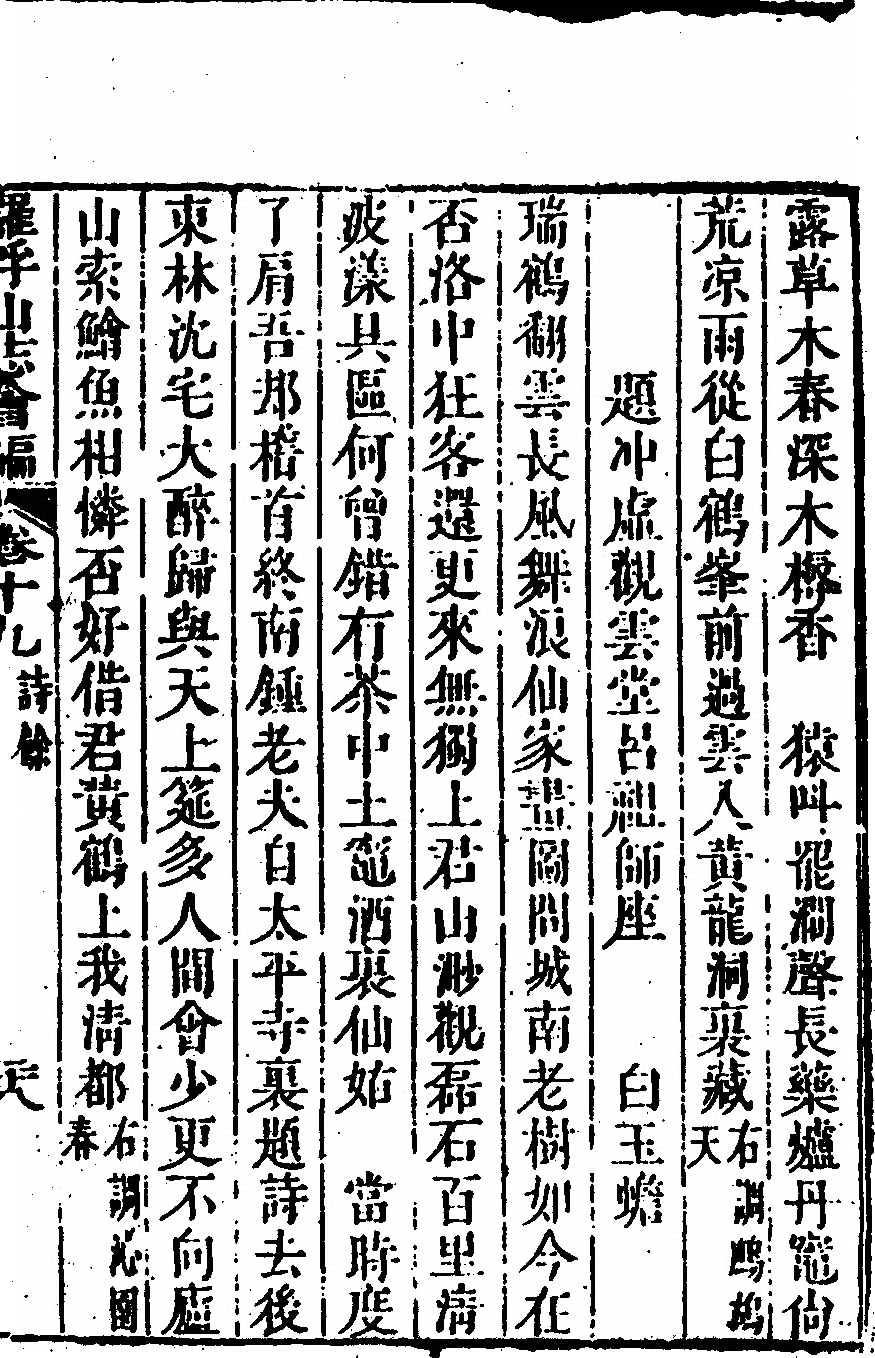 露草木春深木櫱香　猿叫罷澗聲長藥爐丹竈尙
荒凉雨從白鶴峯前過雲入黄龍洞裏藏右調鷓鴣天
題冲虛觀雲堂呂祖師座　白玉蟾
瑞鶴翻雲長風舞浪仙家畫圖問城南老樹如今在
否洛中狂客還更來無獨上君山渺觀磊石百里淸
波漾具區何曾錯有茶中土竈酒裏仙姑　當時度
了肩吾那稽首終南鍾老夫自太平寺裏題詩去後
東林沈宅大醉歸與天上筵多人間會少更不向廬
山索鱠魚柑憐否好借君黄鶴上我淸都右調沁園春
羅浮山志會編　卷十九　詩餘